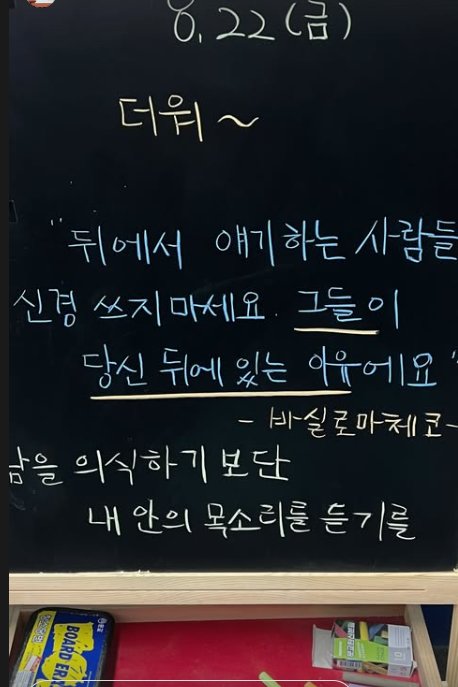 8.22(금)
더워~
"뒤에서 얘기하는 사람들
신경 쓰지마세요. 그들이
당신 뒤에 있는 이유에요"
- 바실로마체코-
남을 의식하기 보단
내 안의 목소리를 듣기를
BOARD ER